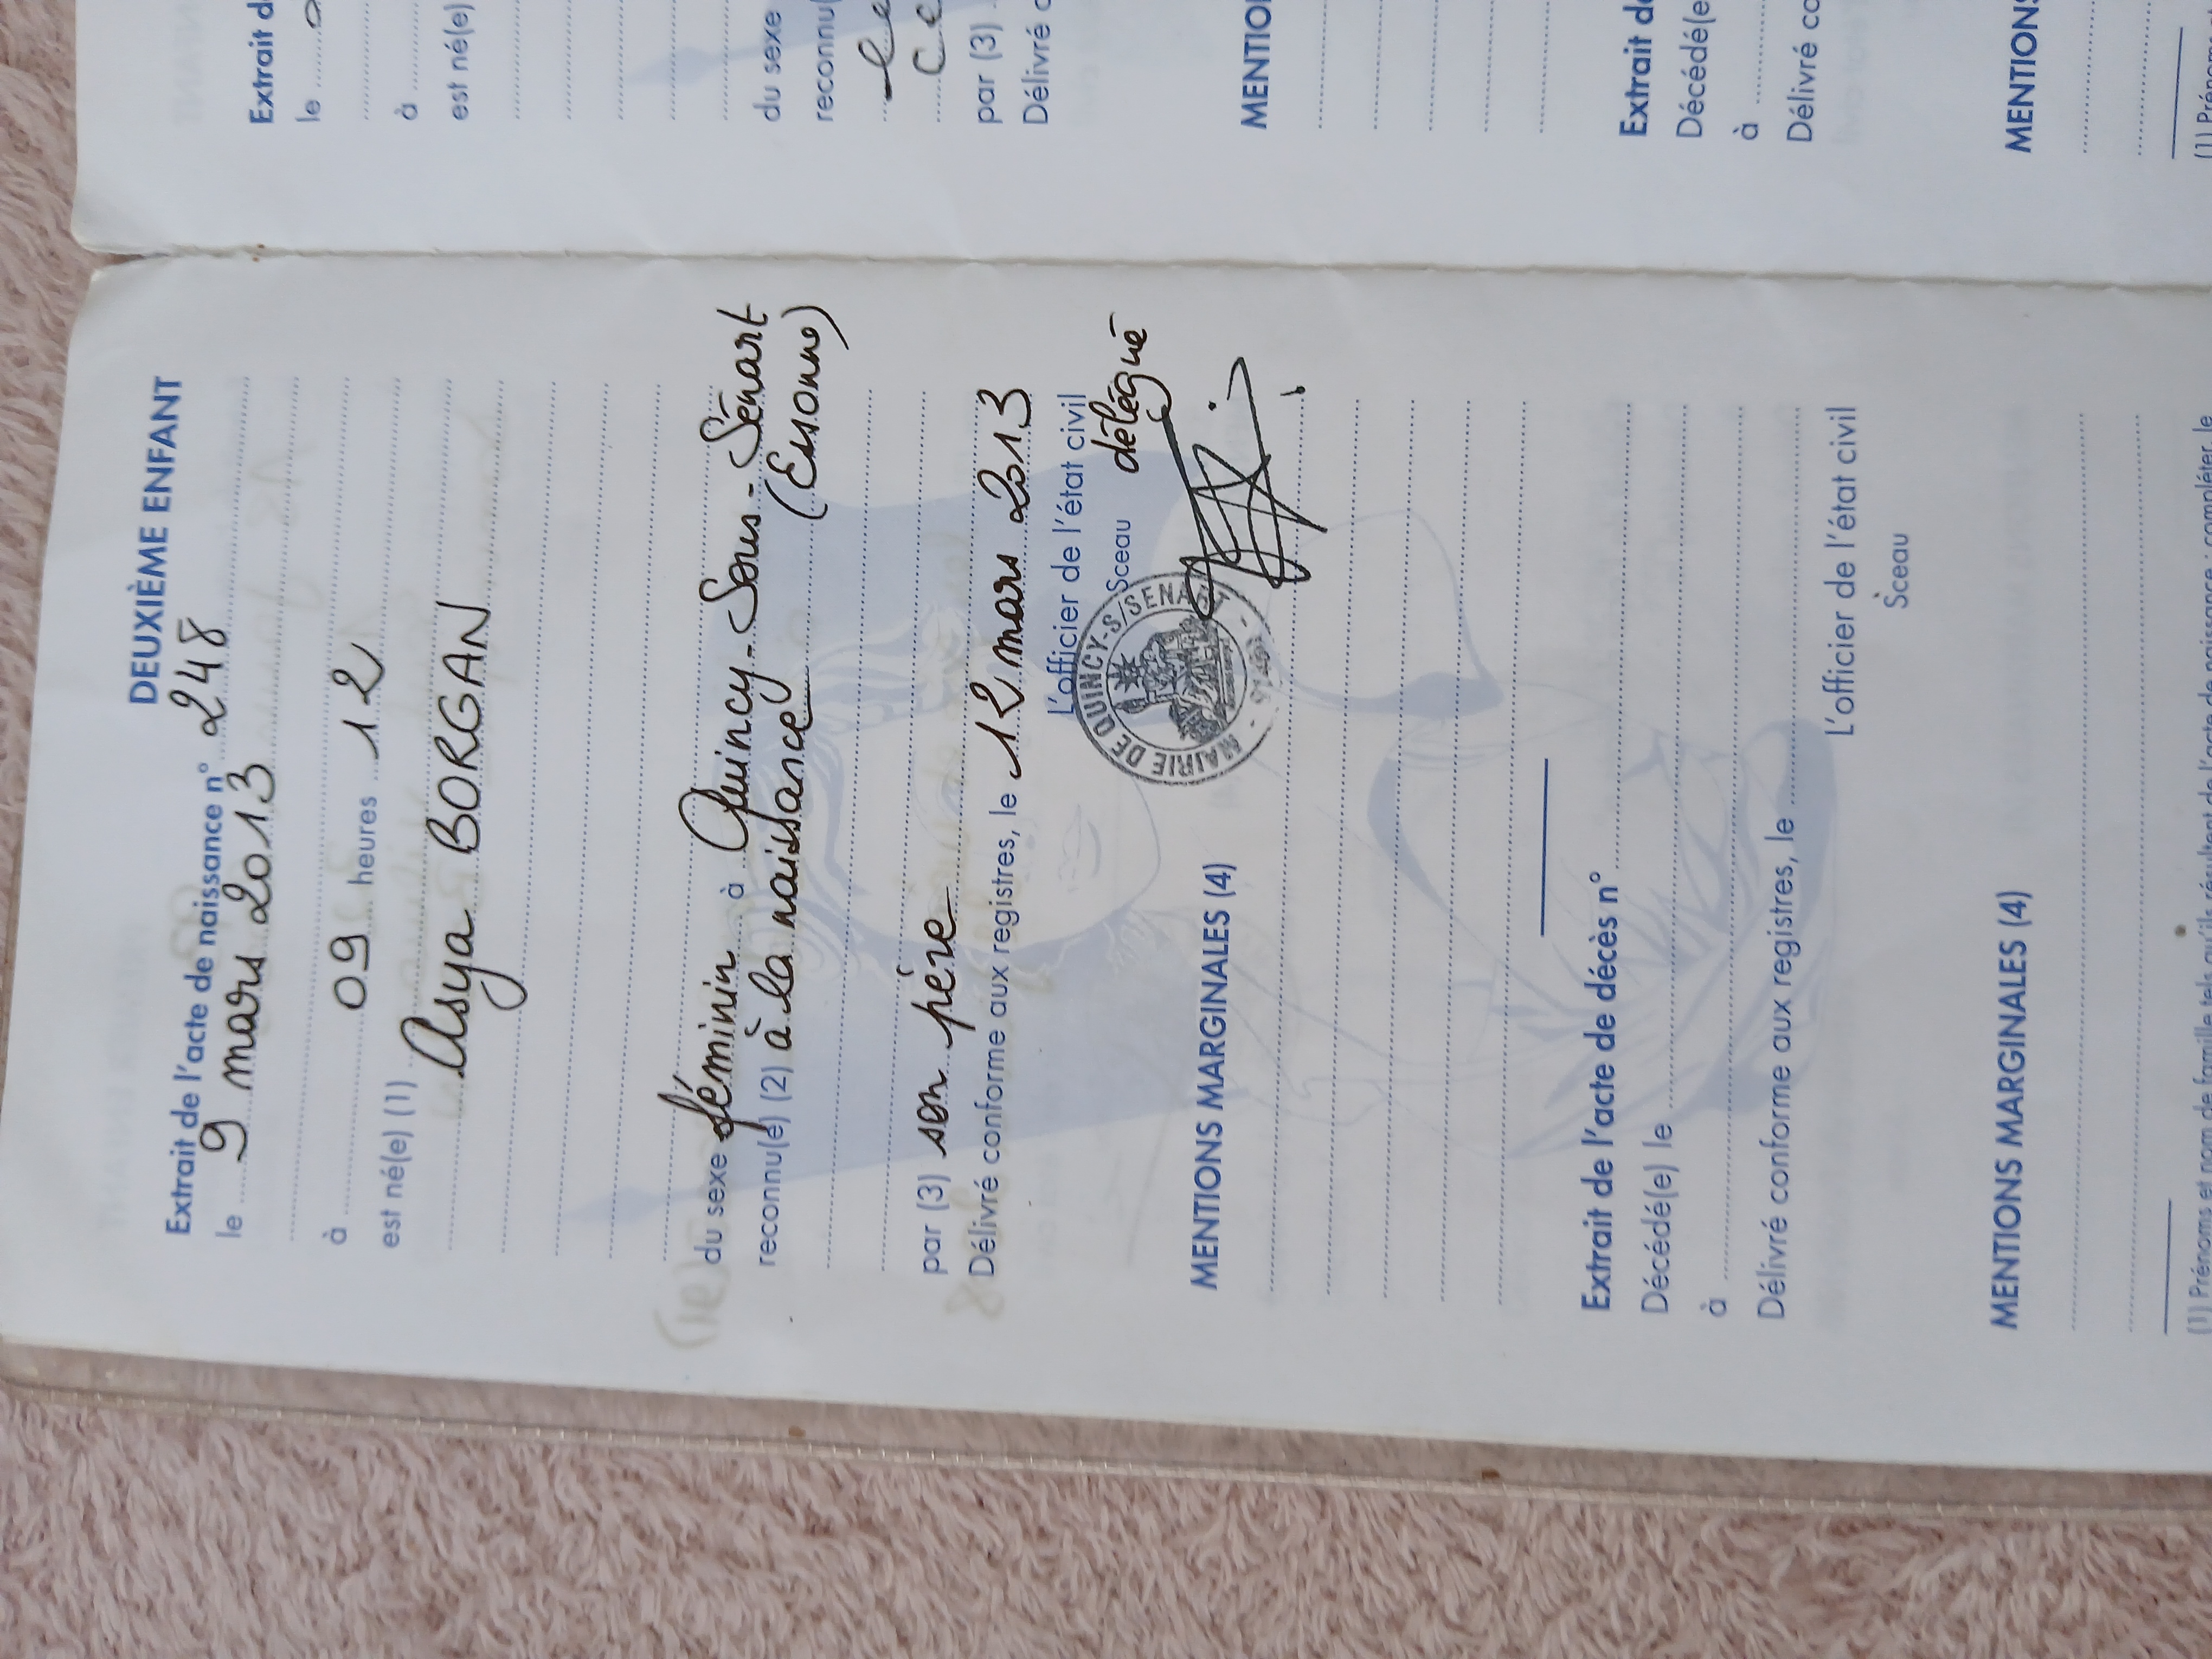 DEUXIÈME ENFANT
Extrait de l'acte de naissance n° 248
le 9 mars 2013
à 09 heures 12
est né(e) (1)
Asya BORGAN
du sexe féminin à Quincy-Sous-Sénart
(Essonne)
reconnu(e) (2) à la naissance
par (3) son père
Délivré conforme aux registres, le 12 mars 2013
L'officier de l'état civil
Sceau délégué
MAIRIE DE QUINCY-S/SENART
MENTIONS MARGINALES (4)
Extrait de l'acte de décès n°
Décédé(e) le
à
Délivré conforme aux registres, le
L'officier de l'état civil
Sceau
MENTIONS MARGINALES (4)
(1) Prénoms et nom de famille tels qu'ils résultent de l'acte de naissance compléter le
Extrait de
le
à
est né(e)
du sexe
reconnu(
par (3)
Délivré c
MENTIO
Extrait de
Décédé(e
à
Délivré co
MENTIONS
(1) Prénoms